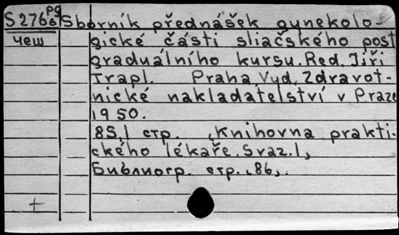 S2766 pg Sborník přednášek gynekolo
чеш gické části sliačského post
graduálního kursu. Red. Jiří
Trapl. Praha Vyd. Zdravot-
nické nakladatelství v Praze
1950.
85,1 стр. (Knihovna prakti-
ckého lékaře. Svaz. 1)
Библиогр. стр. 86.
+